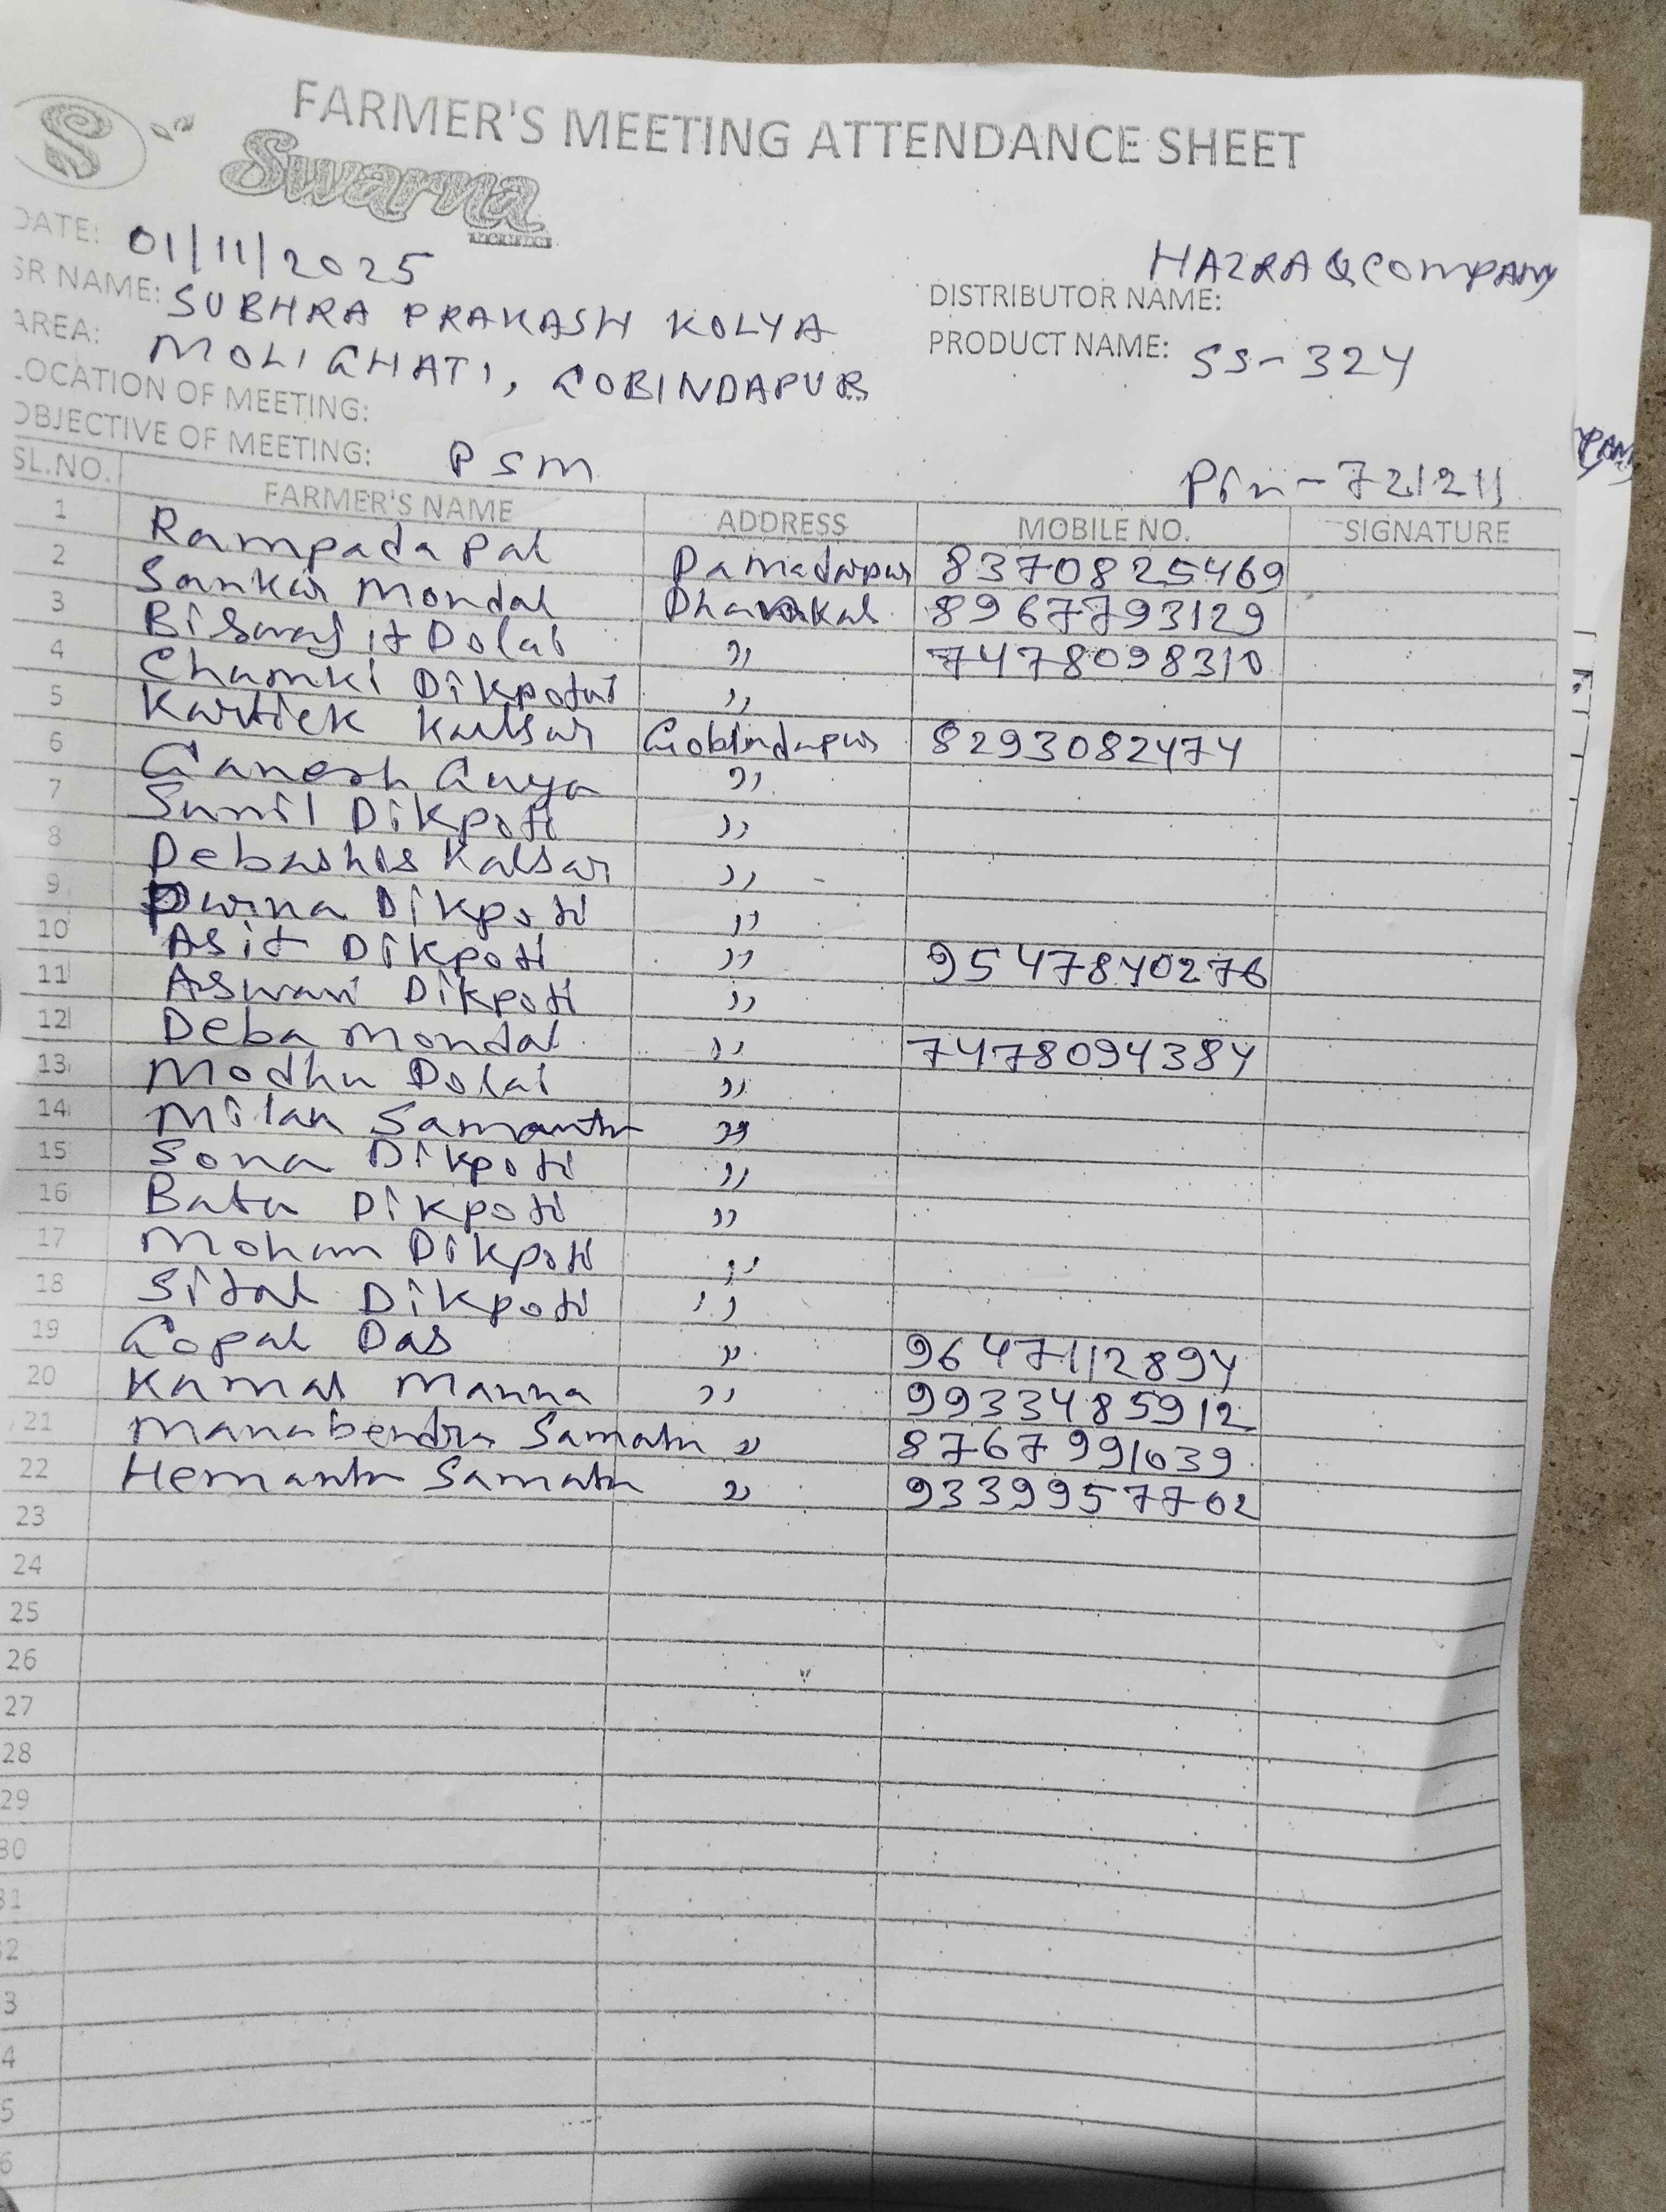 FARMER'S MEETING ATTENDANCE SHEET
S Swarna
DATE: 01/11/2025
SR NAME: SUBHRA PRAKASH KOLYA
DISTRIBUTOR NAME: HAZRA & COMPANY
AREA: MOLIGHATI, GOBINDAPUR
PRODUCT NAME: SS-324
LOCATION OF MEETING:
OBJECTIVE OF MEETING: PSM
Pin-721211
SL.NO. FARMER'S NAME ADDRESS MOBILE NO. SIGNATURE
1 Rampada Pal 8370825469
2 Sankar Mondal 8967793129
3 Biswajit Dolai ,, 7478098310
4 Chamki Dikpotui ,,
5 Kartick Kalsar Gobindapur 8293082474
6 Ganesh Guya ,,
7 Sunil Dikpoti ,,
8 Debashis Kalsar ,,
9 Purna Dikpoti ,,
10 Asit Dikpoti ,, 9547840276
11 Aswani Dikpoti ,,
12 Deba Mondal ,, 7478094384
13 Modhu Dolai ,,
14 Milan Samanta ,,
15 Sona Dikpoti ,,
16 Batu Dikpoti ,,
17 Mohan Dikpoti ,,
18 Sital Dikpoti ,,
19 Gopal Das ,, 9647112894
20 Kamal Manna ,, 9933485912
21 Manabendra Samatu ,, 8767991039
22 Hemanta Samata ,, 9339957702
23
24
25
26
27
28
29
30
31
32
3
4
5
6